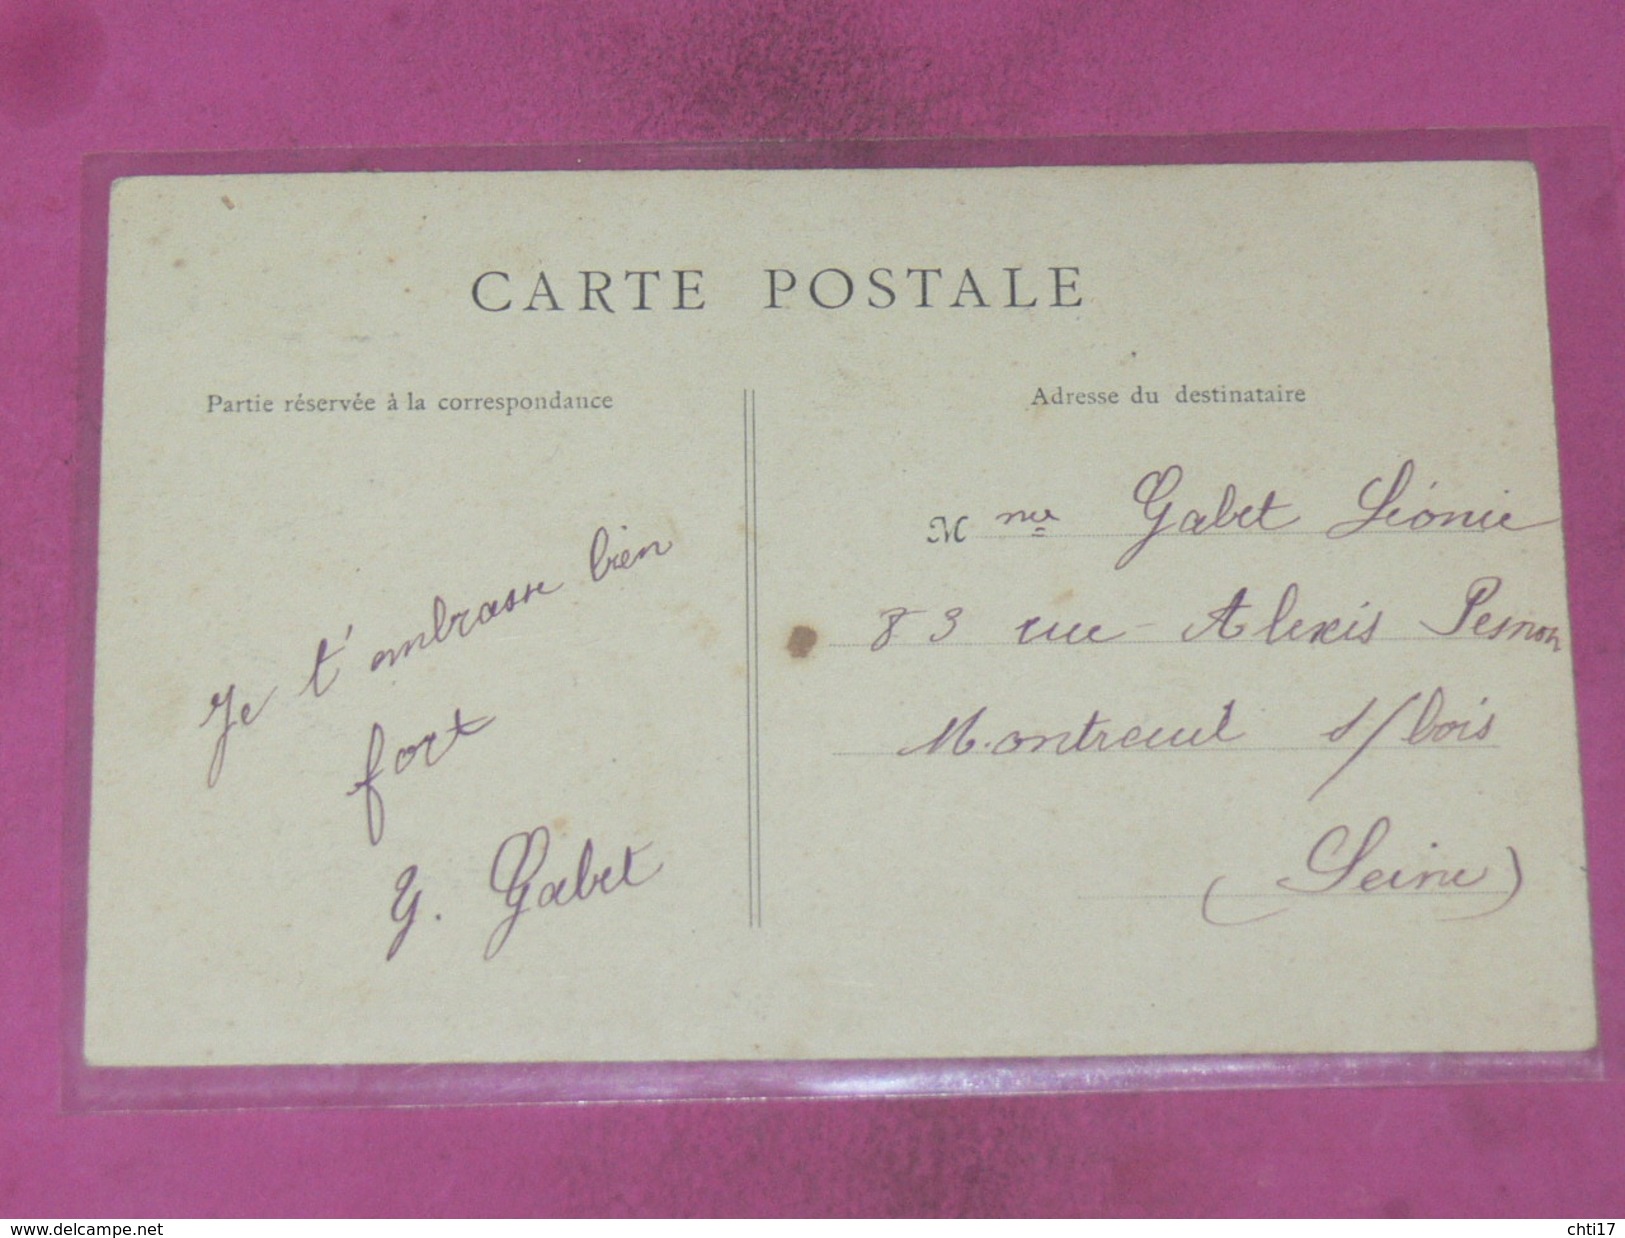 CARTE POSTALE
Partie réservée à la correspondance
Je t'embrasse bien
fort
G. Gabet
Adresse du destinataire
Mme Gabet Léonie
83 rue Alexis Pesnon
Montreuil s/bois
(Seine)
www.delcampe.net
chti17